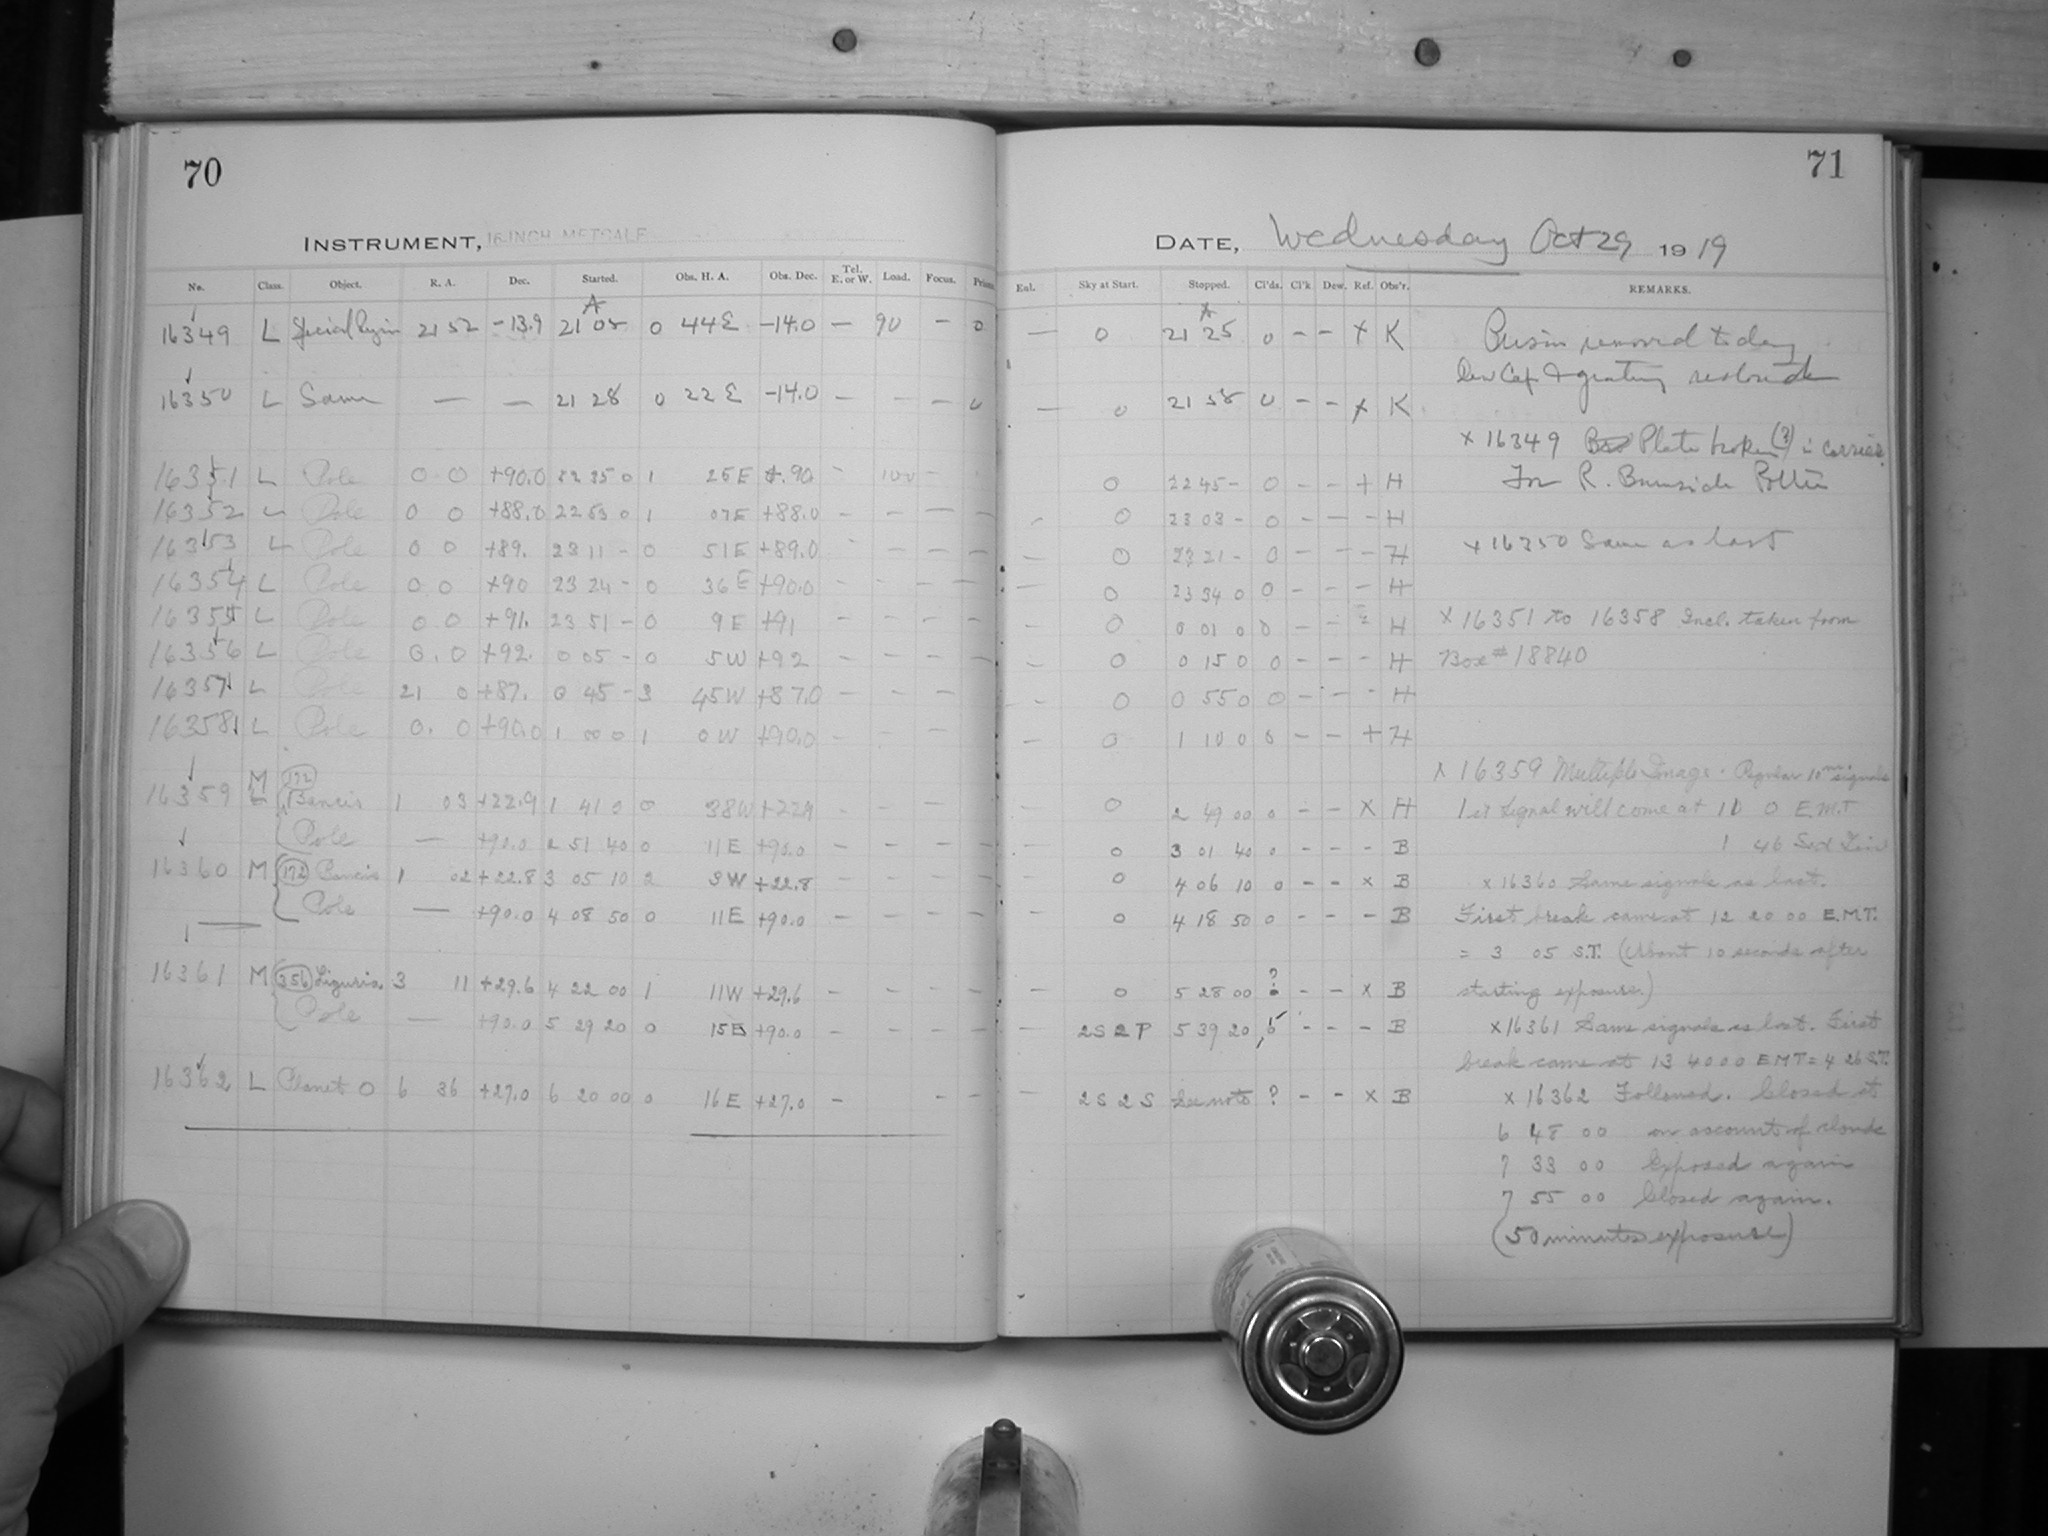 70
INSTRUMENT, 16-INCH METCALF
No. Class. Object. R. A. Dec. Started. Obs. H. A. Obs. Dec. Tel. E. or W. Load. Focus. Prism
16349 L Special Region 21 52 -13.9 21 05 0 44 E -14.0 — 90 - 0
16350 L Same — — 21 28 0 22 E -14.0 — - — 0
16351 L Pole 0 0 +90.0 22 35 0 1 25 E +90 - 100 -
16352 L Pole 0 0 +88.0 22 53 0 1 07 E +88.0 - — — —
16353 L Pole 0 0 +89. 23 11 - 0 51 E +89.0 - — — —
16354 L Pole 0 0 +90 23 24 - 0 36 E +90.0 - — — —
16355 L Pole 0 0 +91. 23 51 - 0 9 E +91 - — — —
16356 L Pole 0. 0 +92. 0 05 - 0 5 W +92 — — — —
16357 L Pole 21 0 +87. 0 45 - 3 45 W +87.0 — — — —
16358 L Pole 0. 0 +90.0 1 00 0 1 0 W +90.0 - — —
16359 M L (172) Baucis 1 03 +22.9 1 41 0 0 38 W +22.9 - - —
Pole — +90.0 2 51 40 0 11 E +90.0 - - - -
16360 M (172) Baucis 1 02 +22.8 3 05 10 2 3 W +22.8 - - - -
Pole — +90.0 4 08 50 0 11 E +90.0 - - - -
16361 M (356) Liguria. 3 11 +29.6 4 22 00 1 11 W +29.6 - - - -
Pole — +90.0 5 29 20 0 15 E +90.0 - - - -
16362 L Planet O 6 36 +27.0 6 20 00 0 16 E +27.0 - - -
71
DATE, Wednesday Oct 29 1919
Ent. Sky at Start. Stopped. Cl'ds. Cl'k Dew. Ref. Obs'r. REMARKS.
— 0 21 25 0 - - x K Prism removed today
Dew Cap & grating restored
— 0 21 58 0 - - x K
x 16349 Plate broken (?) in carrier.
0 22 45 - 0 - - + H For R. Burnside Potter
- 0 23 03 - 0 - — - H
— 0 23 21 - 0 - - - H x 16350 Same as last
— 0 23 34 0 0 - - - H
— 0 0 01 0 0 - - - H x 16351 to 16358 Incl. taken from
- 0 0 15 0 0 - - - H Box # 18840
- 0 0 55 0 0 - - - H
— 0 1 10 0 0 - - + H
x 16359 Multiple Image. Regular 10m signals
— 0 2 49 00 0 - - x H 1st signal will come at 11 0 E.M.T
— 0 3 01 40 0 - - - B 1 46 Sid Time
— 0 4 06 10 0 - - x B x 16360 Same signals as last.
— 0 4 18 50 0 - - - B First break came at 12 20 00 E.M.T.
= 3 05 S.T. (About 10 seconds after
— 0 5 28 00 ? - - x B starting exposure.)
— 2S2P 5 39 20 5 - - - B x16361 Same signals as last. First
break came at 13 40 00 EMT = 4 26 S.T.
— 2S2S See note ? - - x B x 16362 Followed. Closed at
6 48 00 on account of clouds
7 33 00 Exposed again
7 55 00 Closed again.
(50 minutes exposure)